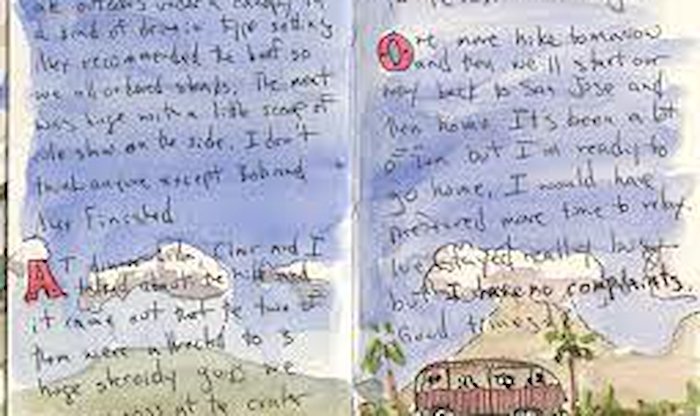 a kind of drive in type setting
they recommended the beef so
we all ordered steaks. The meat
was huge with a little scoop of
cole slaw on the side. I don't
think anyone except
they Finished
AT dinner and I
talked about the hike and
it came out that the two of
them were attracted to 3
huge steroidy guys we
pass at the crater
One more hike tomorrow
and then we'll start our
way back to San Jose and
then home. It's been a lot
of fun but I'm ready to
go home. I would have
preferred more time to relax.
We stayed really busy
but I have no complaints.
Good times!